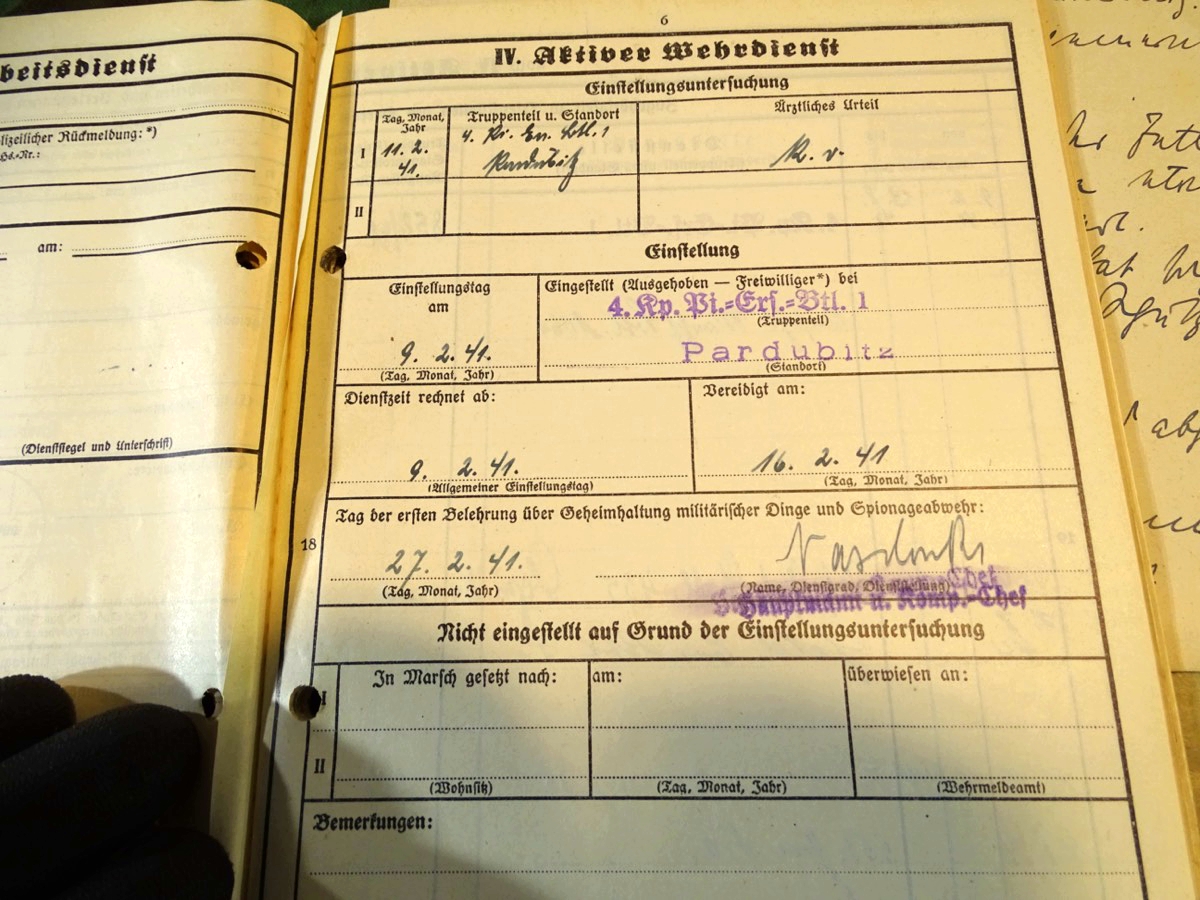 beitsdienst
lizeilicher Rückmeldung: *)
Hs.-Nr.:
am:
(Dienstsiegel und Unterschrift)
6
IV. Aktiver Wehrdienst
Einstellungsuntersuchung
Tag, Monat, Jahr
Truppenteil u. Standort
Ärztliches Urteil
I
11. 2. 41.
4. Pi. Ers. Btl. 1
Pardubitz
K. v.
II
Einstellung
Einstellungstag
am
9. 2. 41.
(Tag, Monat, Jahr)
Eingestellt (Ausgehoben — Freiwilliger*) bei
4. Kp. Pi.=Ers.=Btl. 1
(Truppenteil)
Pardubitz
(Standort)
Dienstzeit rechnet ab:
9. 2. 41.
(Allgemeiner Einstellungstag)
Vereidigt am:
16. 2. 41
(Tag, Monat, Jahr)
18
Tag der ersten Belehrung über Geheimhaltung militärischer Dinge und Spionageabwehr:
27. 2. 41.
(Tag, Monat, Jahr)
(Name, Dienstgrad, Dienststellung)
Hauptmann u. Komp.-Chef
Nicht eingestellt auf Grund der Einstellungsuntersuchung
In Marsch gesetzt nach:
am:
überwiesen an:
I
II
(Wohnsitz)
(Tag, Monat, Jahr)
(Wehrmeldeamt)
Bemerkungen: